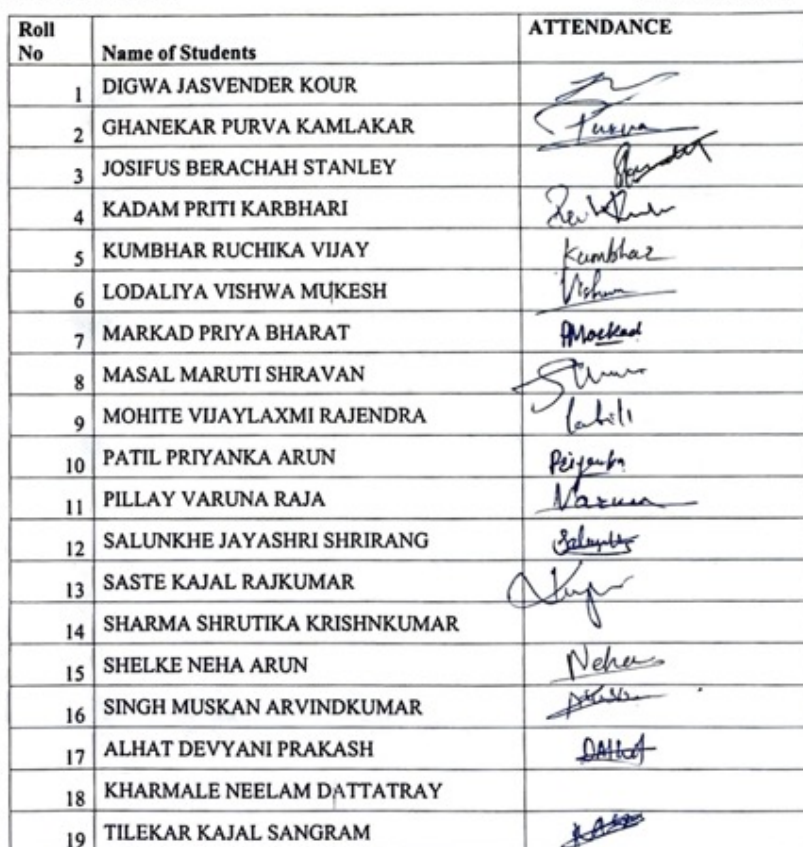 Roll No Name of Students ATTENDANCE
1 DIGWA JASVENDER KOUR
2 GHANEKAR PURVA KAMLAKAR Purva
3 JOSIFUS BERACHAH STANLEY
4 KADAM PRITI KARBHARI
5 KUMBHAR RUCHIKA VIJAY Kumbhar
6 LODALIYA VISHWA MUKESH
7 MARKAD PRIYA BHARAT PMarkad
8 MASAL MARUTI SHRAVAN
9 MOHITE VIJAYLAXMI RAJENDRA
10 PATIL PRIYANKA ARUN Priyanka
11 PILLAY VARUNA RAJA Varuna
12 SALUNKHE JAYASHRI SHRIRANG
13 SASTE KAJAL RAJKUMAR
14 SHARMA SHRUTIKA KRISHNKUMAR
15 SHELKE NEHA ARUN Neha
16 SINGH MUSKAN ARVINDKUMAR
17 ALHAT DEVYANI PRAKASH DAlhat
18 KHARMALE NEELAM DATTATRAY
19 TILEKAR KAJAL SANGRAM